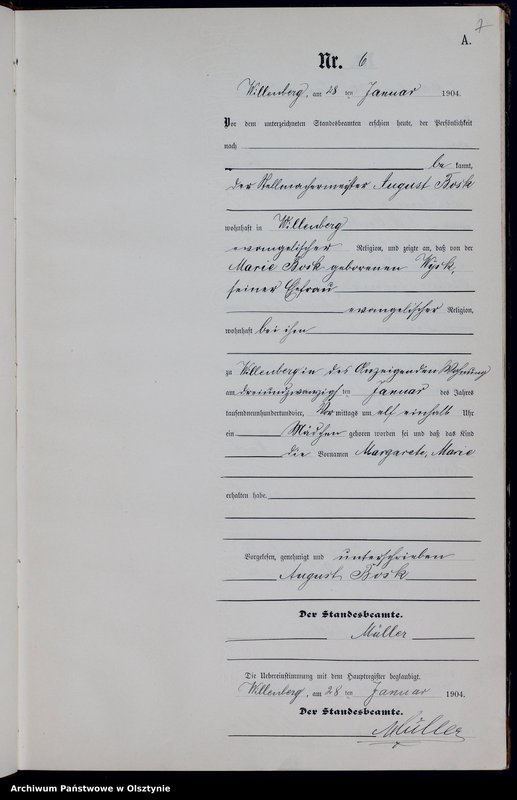 7
A.
Nr. 6
Willenberg, am 28 ten Januar 1904.
Vor dem unterzeichneten Standesbeamten erschien heute, der Persönlichkeit
nach
be kannt,
der Stellmachermeister August Bosk
wohnhaft in Willenberg
evangelischer Religion, und zeigte an, daß von der
Marie Bosk geborenen Wysk,
seiner Ehefrau
evangelischer Religion,
wohnhaft bei ihm
zu Willenberg in des Anzeigenden Wohnung
am dreiundzwanzigsten Januar des Jahres
tausendneunhundertundvier, Vor mittags um elf einhalb Uhr
ein Mädchen geboren worden sei und daß das Kind
die Vornamen Margarete, Marie
erhalten habe.
Vorgelesen, genehmigt und unterschrieben
August Bosk
Der Standesbeamte.
Müller
Die Uebereinstimmung mit dem Hauptregister beglaubigt.
Willenberg, am 28 ten Januar 1904.
Der Standesbeamte.
Müller
Archiwum Państwowe w Olsztynie